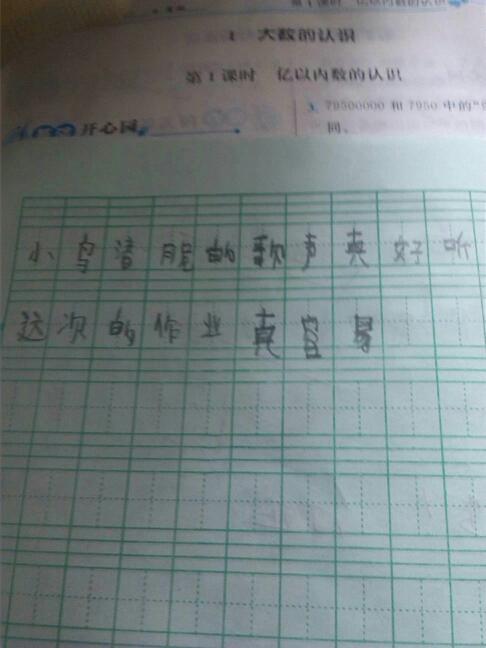 1 大数的认识
第1课时 亿以内数的认识
3. 79500000 和 7950 中的"
开心园
同。
小鸟清脆的歌声真好听
这次的作业真容易